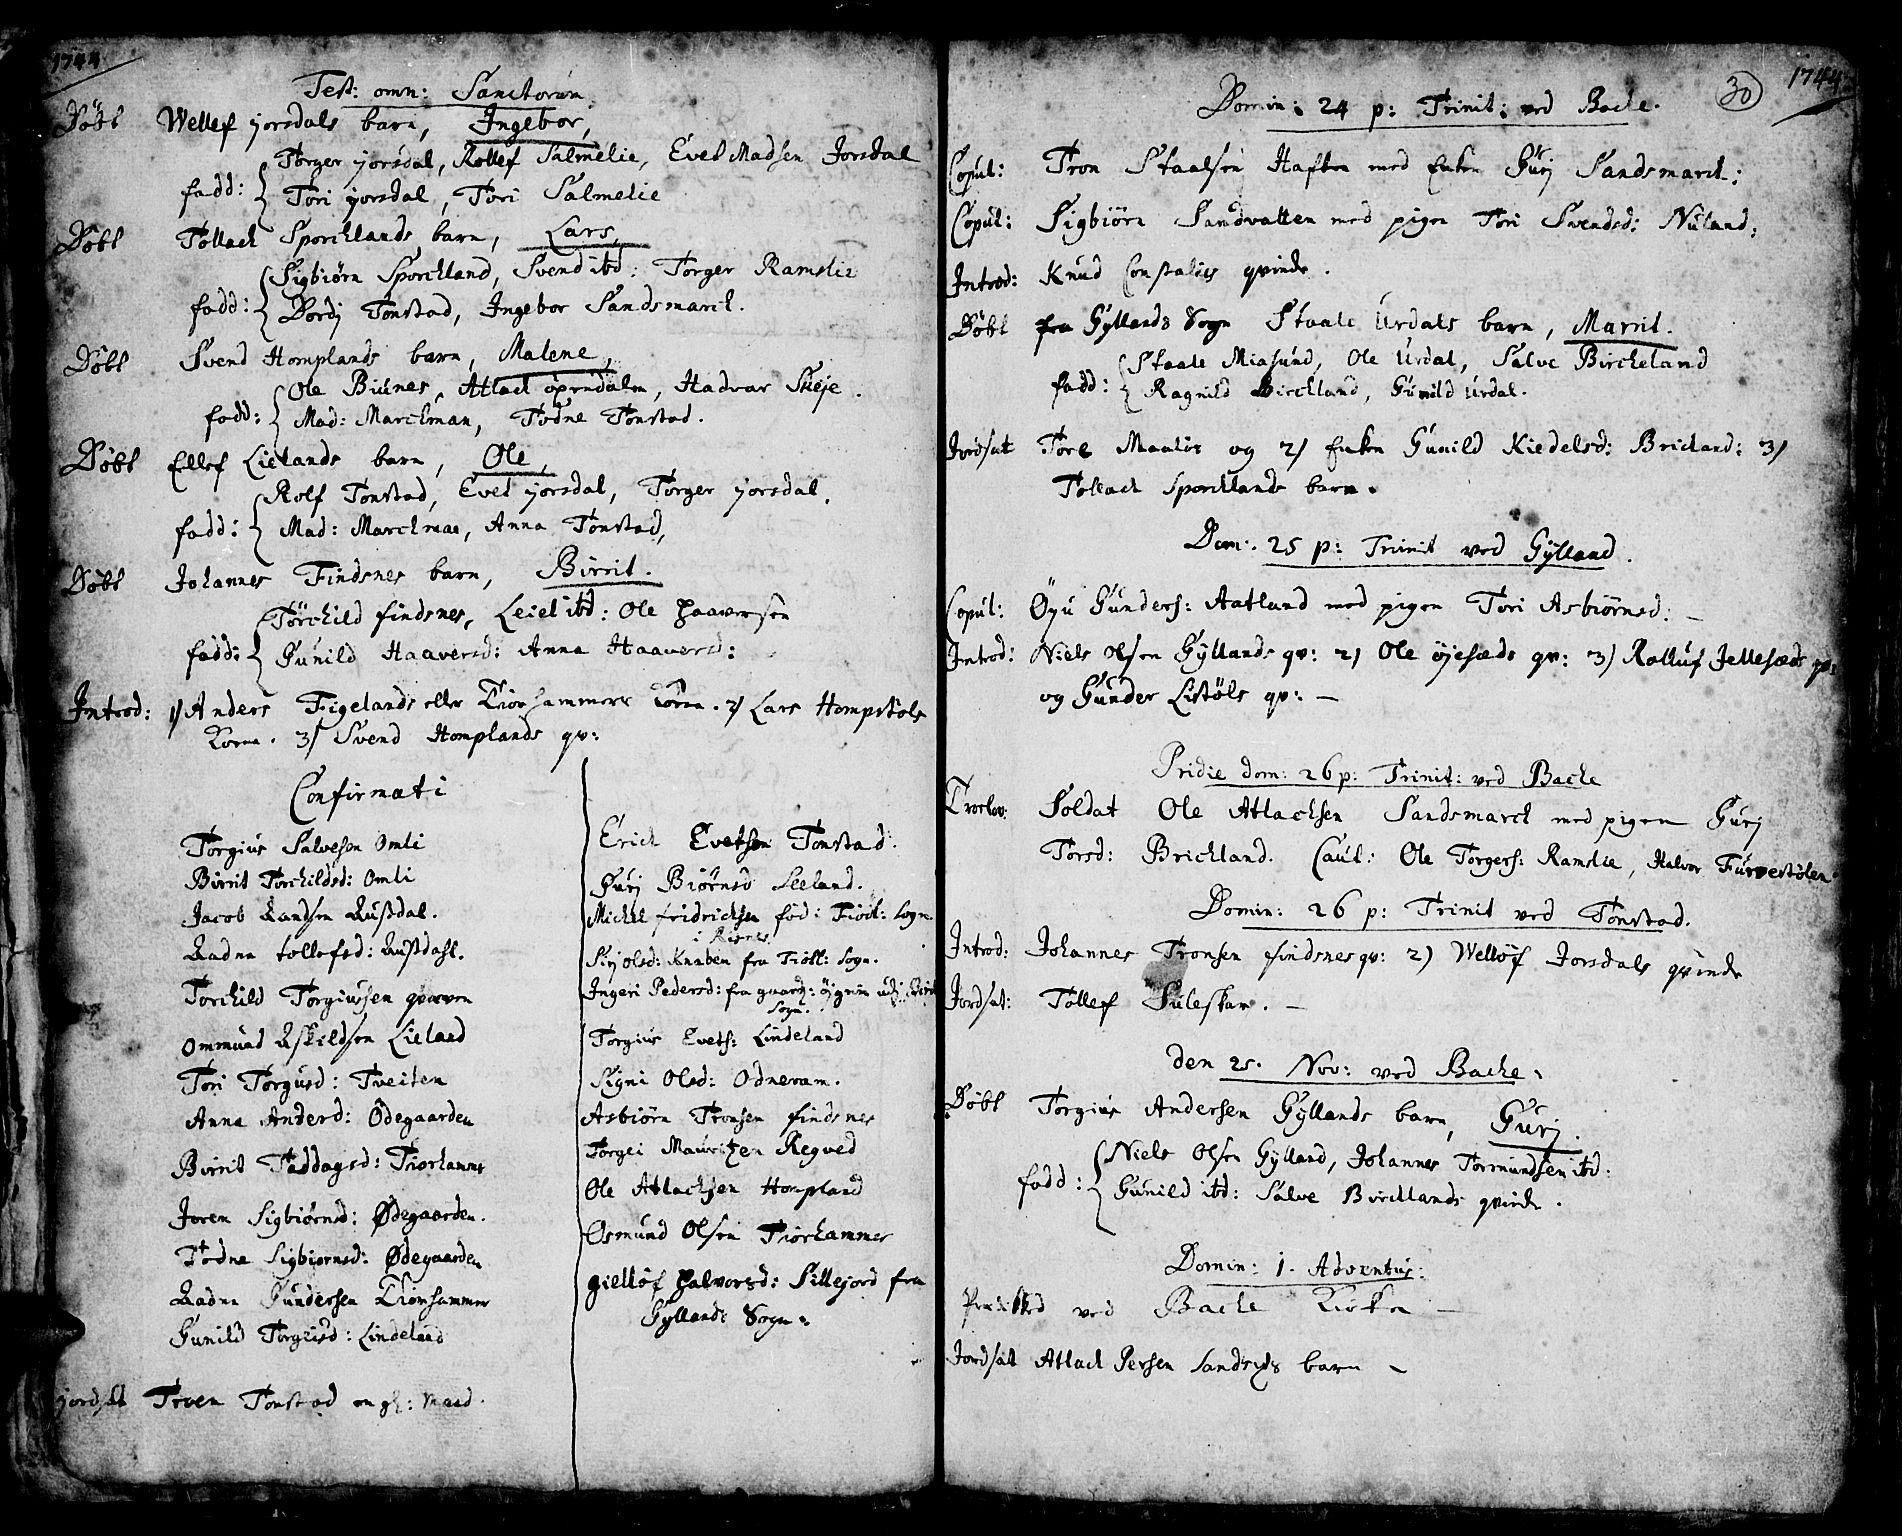 1744
Fest: omn: Sanctorum
Döbt Wellef jorsdals barn, Ingebor,
Torger jorsdal, Rollef Salmelie, Evet Madsen Jorsdal
fadd: Tori jorsdal, Tori Salmelie
Döbt Tollach Sporcklands barn, Lars,
Sigbiörn Sporckland, Svend ibd: Torger Ramslie
fadd: Dordj Tonstad, Ingebor Sandsmarck.
Döbt Svend Homplands barn, Malene,
Ole Biunes, Atlach öpendalen, Hadvar Skeje.
fadd: Mad: Marckman, Todne Tonstad.
Döbt Ellef Lielands barn, Ole,
Rolf Tonstad, Evet jorsdal, Torger jorsdal.
fadd: Mad: Marckman, Anna Tonstad,
Döbt Johannes Findsnes barn, Birrit.
Törchild findsnes, Leiel ibd: Ole Haaversen
fadd: Gunild Haaversd: Anna Haaversd:
Introd: 1/ Anders Figelands eller Tiorhammers kone. 2/ Lars Hompstöls
kone. 3/ Svend Homplands qv:
Confirmati
Torgius Salvesen Omli
Birrit Torchildsd: Omli
Jacob Aandsen Austdal.
Aadne tollefsd: Austdahl.
Torchild Torgiussen qvæven
Ommund Askildsen Lieland
Tori Torgusd: Tveiten
Anna Andersd: Ödegaarden
Birrit Taddagsd: Tiorhamer
Joren Sigbiörnsd: Ødegaarden.
Todne Sigbiornsd: Ødegaarden
Aadne Gundersen Tiorhammer
Gunild Torgeisd: Lindeland
jordsat Troen Tonstad en gl: Mand.
Erich Evetsen Tonstad.
Gurj Biörnsd Leeland.
Michel fridrichsen föd i Fiotl: Sogn.
i Risnes
Sirj olsd: Knaben fra Fiotl: Sogn.
Ingeri Pedersd: fra
Sogn.
Torgius Evets: Lindeland
Signi Olsd: Odneram.
Asbiörn Tronsen findsnes
Torgei Mauritzen Regved
Ole Atlachsen Hompland
Osmund Olsen Tiorhammer
giellöf Halvorsd: Sillejord fra
Gyllands Sogn.
30
1744
Domin: 24 p: Trinit: ved Backe.
Copul: Tron Staalsen Haften med Enken Gurj Sandsmarck:
Copul: Sigbiörn Sandvatten med pigen Tori Svendsd: Nuland:
Introd: Knud Constalies qvinde.
Döbt fra Gyllands Sogn Staale Urdals barn, Marrit.
Staale Miasund, Ole Urdal, Salve Birckeland
fadd: Ragnild Birckland, Gunild Urdal.
Jordsat Tore og 2/ Enken Gunild Kiedelsd: Brickland: 3/
Tollach Sporcklands barn.
Dom: 25 p: Trinit ved Gylland.
Copul: Öyu Gunders: Aatland med pigen Tori Asbiörnsd: –
Introd: Niels Olsen Gyllands qv: 2/ Ole öjesæds qv: 3/ Rolluf Jellesæds qv:
og Gunder Listöls qv: –
Pridie dom: 26 p: Trinit: ved Backe
Troelov: Soldat Ole Atlachsen Sandsmarck med pigen Gurj
Torsd: Brickland. Caut: Ole Torgers: Ramslie, Halvor Furvestölen
Domin: 26 p: Trinit ved Tonstad.
Introd: Johannes Tronsen findsnes qv: 2) Wellöf Jorsdals qvinde
Jordsat: Tollef Suleskar. –
den 25. Nov: ved Backe.
Döbt Torgius Andersen Gyllands barn, Gurj.
Niels Olsen Gylland, Johannes Tormundsen ibd:
fadd: Gunild ibd: Salve Bircklands qvinde.
Domin: 1. Adventus:
Prædiked ved Backe Kirke –
Jordsat Atlach Persen barn –